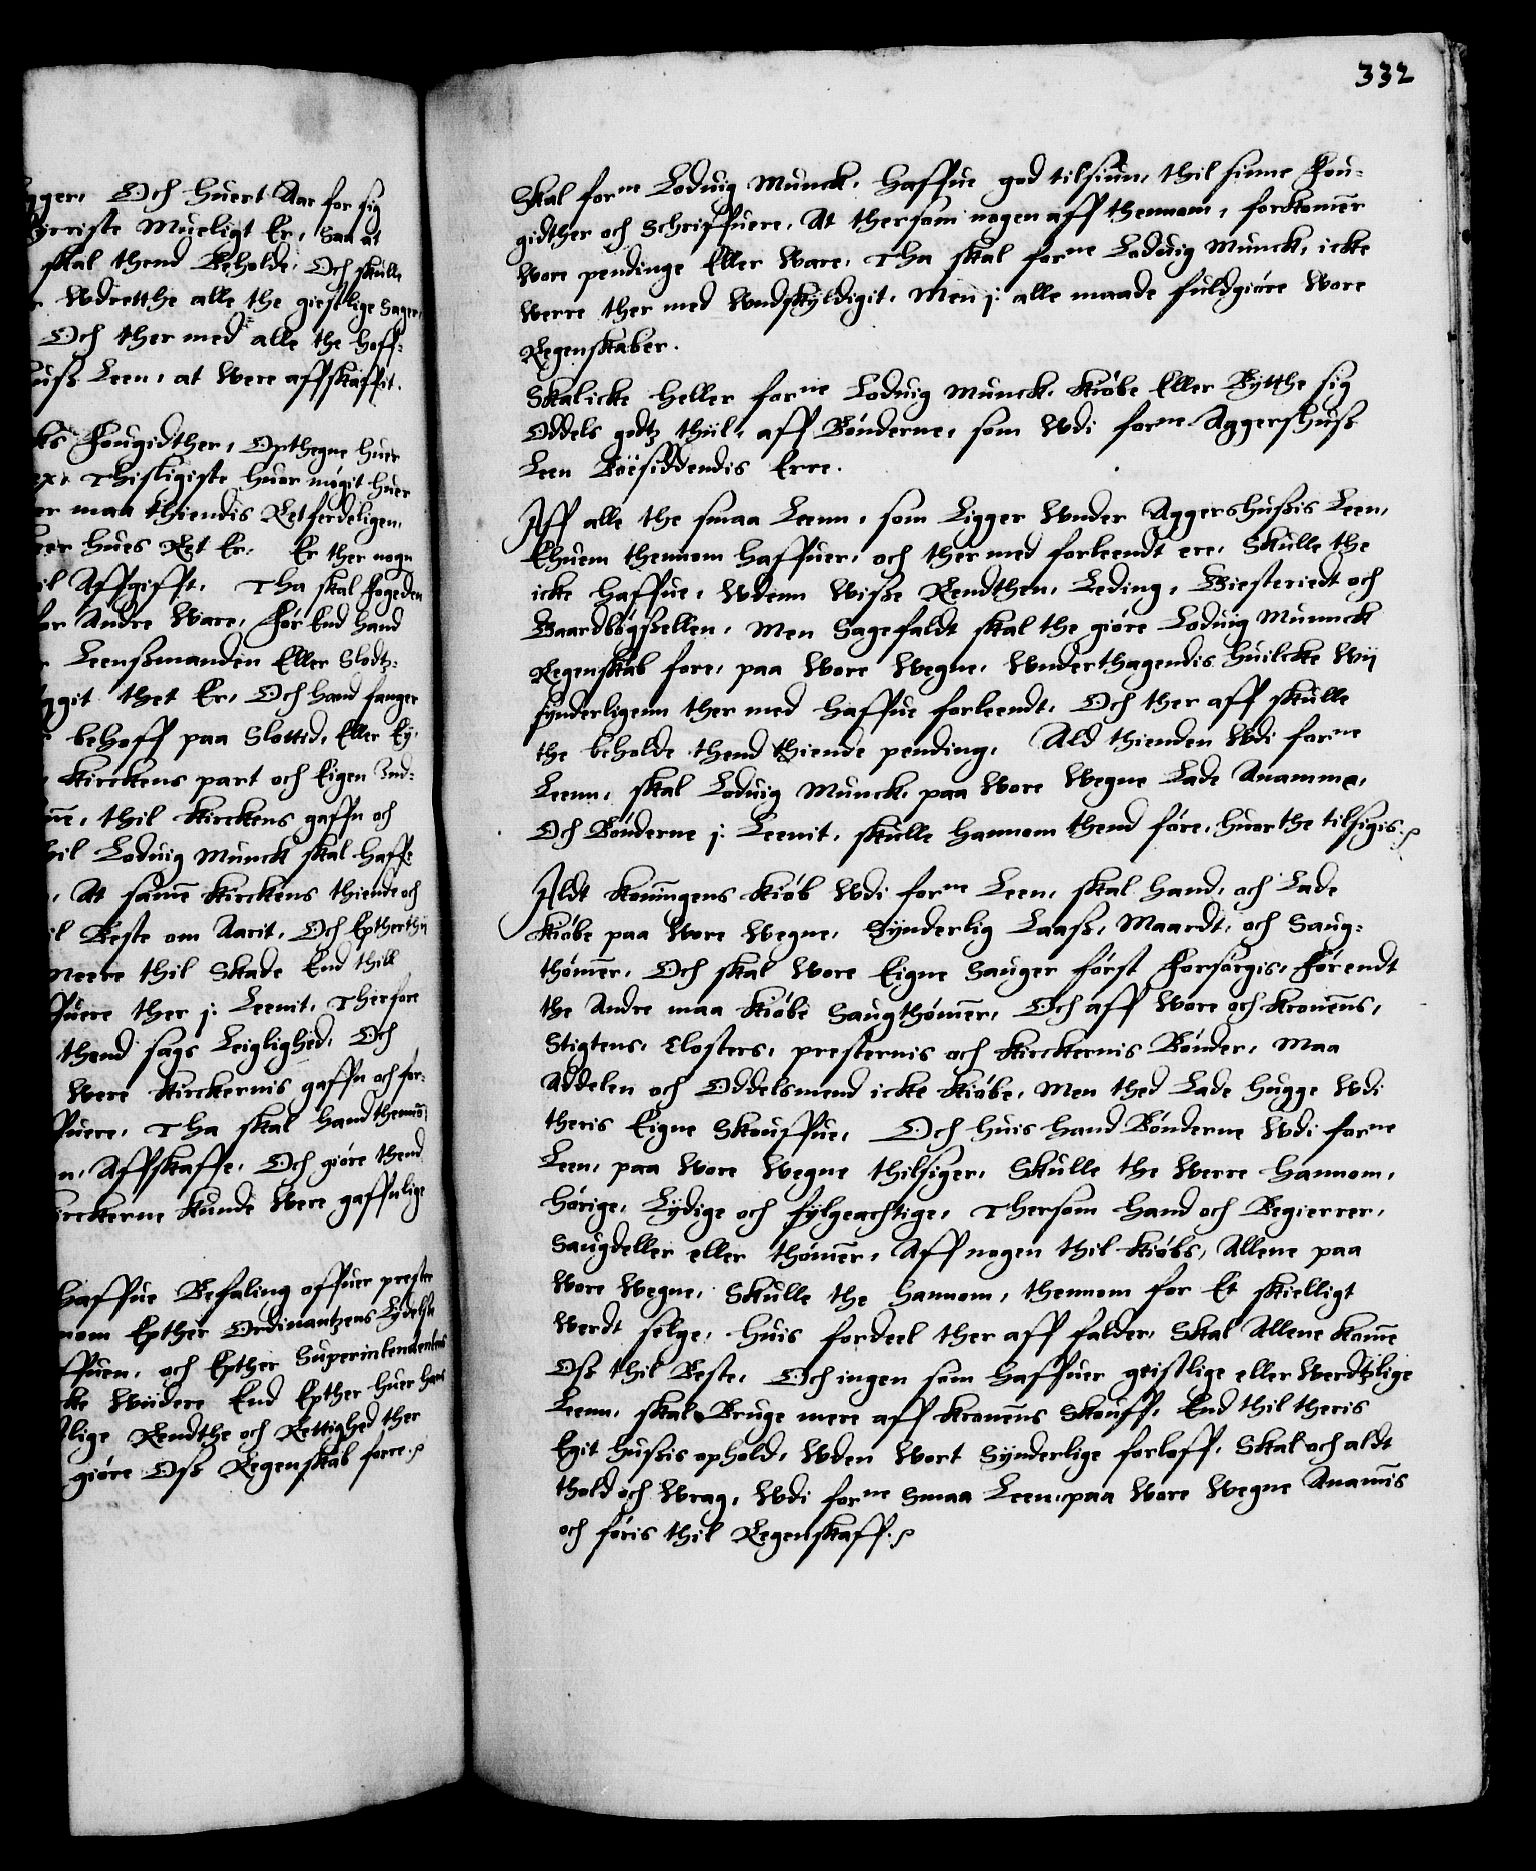 gger, Och huert Aar for sig
ørriste Mueligt Er, Saa at
skal thend Beholde, Och skulle
Wdretthe alle the giestlige Sager,
Och ther med alle the hoff-
huss Leen, at Were affskaffit.
ks Fougidther, Opthegne huer
Thisligiste huor møgit huer
er maa thiendis Retferdeligen,
hues Ret Er, Er ther nogn
il Affgifft, Tha skal fogeden
for Andre Ware, Før End hand
Leenssmanden Eller Slodtz-
ygit thet Er, Och hand fanger
behoff paa Slottid, Eller Ey,
kirckens part och Eigen Ind-
thil kirckens gaffn och
hil Loduig Munck skal haff-
At samme kirckens thiende och
il Beste om Aarit, Och Epther thij
meere thil Skade End thill
ffuere ther j Leenit, Therfore
thend sags Leiglighed, Och
Were kirckernis gaffn och for-
ffuere, Tha skal hand thennom
n, Affskaffe, Och giøre thend
irckerne kunde Were gaffnlige
haffue Befaling offuer preste
nom Epther Ordinantzens Lydelse
ffuen, och Epther Superintendentens
cke Wiidere End Epther huer hans
lige Rendthe och Rettighed ther
giøre Oss Regenskab fore.
332
Skal forne Loduig Munck, haffue god tilsiun, thil sinne Fou-
gidther och Schriffuere, At thersom nogen aff thennom, forkommer
Wore pendinge Eller Ware, Tha skal forne Loduig Munck, icke
Werre ther med Wndskyldigit, Men j alle maade fuldgiøre Wore
Regenskaber.
Skal icke heller forne Loduig Munck, kiøbe Eller Bytthe sig
Oddels godtz thiil, aff Bønderne, som Wdi forne Aggershuss
Leen Boësiddendis Erre.
Aff alle the smaa Leenn, som Ligger Wnder Aggershussis Leen,
Ehuem thennom haffuer, och ther med forleendt ere, Skulle the
icke haffue, Wdenn Wisse Rendthen, Leding, Giesteriedt och
Gaardbøgsellen, Men Sagefaldt skal the giøre Loduig Munnck
Regenskab fore, paa Wore Wegne, Wnderthagendis huilcke Wij
synderligenn ther med haffue forleendt, Och ther aff skulle
the beholde thend thiende pending, Ald thienden Wdi forne
Leenn, skal Loduig Munck, paa Wore Wegne Lade Anamme,
Och Bønderne j Leenit, skulle hannom thend føre, huor the tilsigis.
Aldt konningens kiøb Wdi forne Leen, skal hand, och Lade
kiøbe paa Wore Wegne, Synderlig Laass, Maardt, och Saug-
thømmer, Och skal Wore Eigne Sauger først Forsørgis, Førendt
the Andre maa kiøbe Saugthømmer, Och aff Wore och kronenns,
Stigtens, Closters, presternis och kirckernis Bønder, Maa
Addelen och Oddelsmend icke kiøbe, Men thed Lade hugge Wdi
theris Eigne Skouffue, Och huis hand Bønderne Wdi forne
Leen, paa Wore Wegne thilsiger, Skulle the Werre hannom,
hørige, Lydige och fylgeachtige, Thersom hand och Begierrer,
Saugdeller eller thømmer, Aff nogen thil kiøbs, Allene paa
Wore Wegne, Skulle the hannom, thennom for Et skielligt
Werdt selge, huis fordeel ther aff falder, Skal Allene komme
Oss thil Beste, Och ingen som haffuer geistlige eller Werdtzlige
Leenn, skal Bruge mere aff kronenns Skouff, End thil theris
Egit hussis ophold, Wden Wort Synderlige forloff, Skal och aldt
thold och Wrag, Wdi forne Smaa Leen, paa Wore Wegne Anammis
och føris thil Regenskaff.